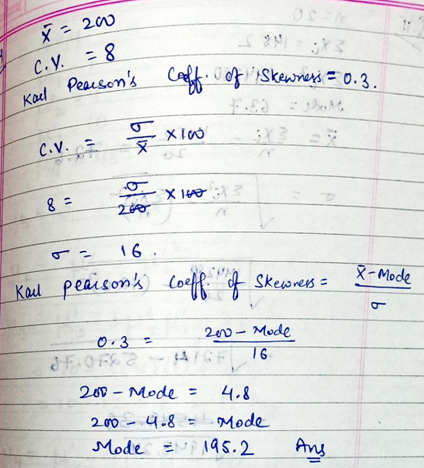 x̄ = 200
C.V. = 8
Karl Pearson's Coeff. of Skewness = 0.3.
C.V. = σ/x̄ × 100
8 = σ/200 × 100
σ = 16.
Karl Pearson's Coeff. of Skewness = x̄-Mode/σ
0.3 = 200 - Mode/16
200 - Mode = 4.8
200 - 4.8 = Mode
Mode = 195.2 Ans